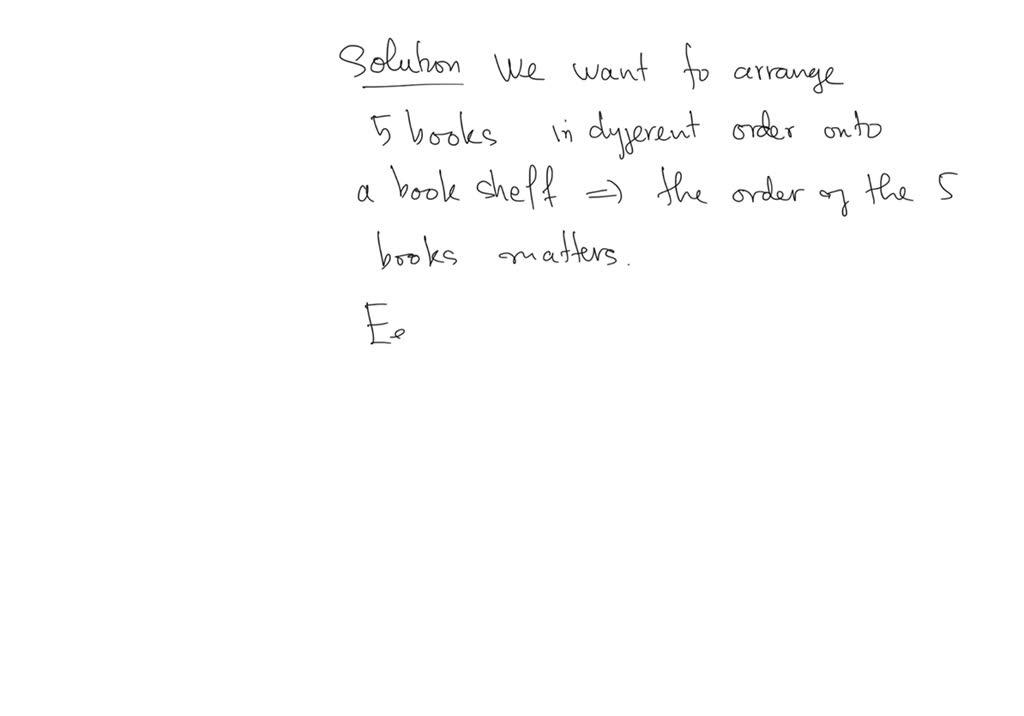 Solution We want to arrange
5 books in different order onto
a book shelf => the order of the 5
books matters.
Ee